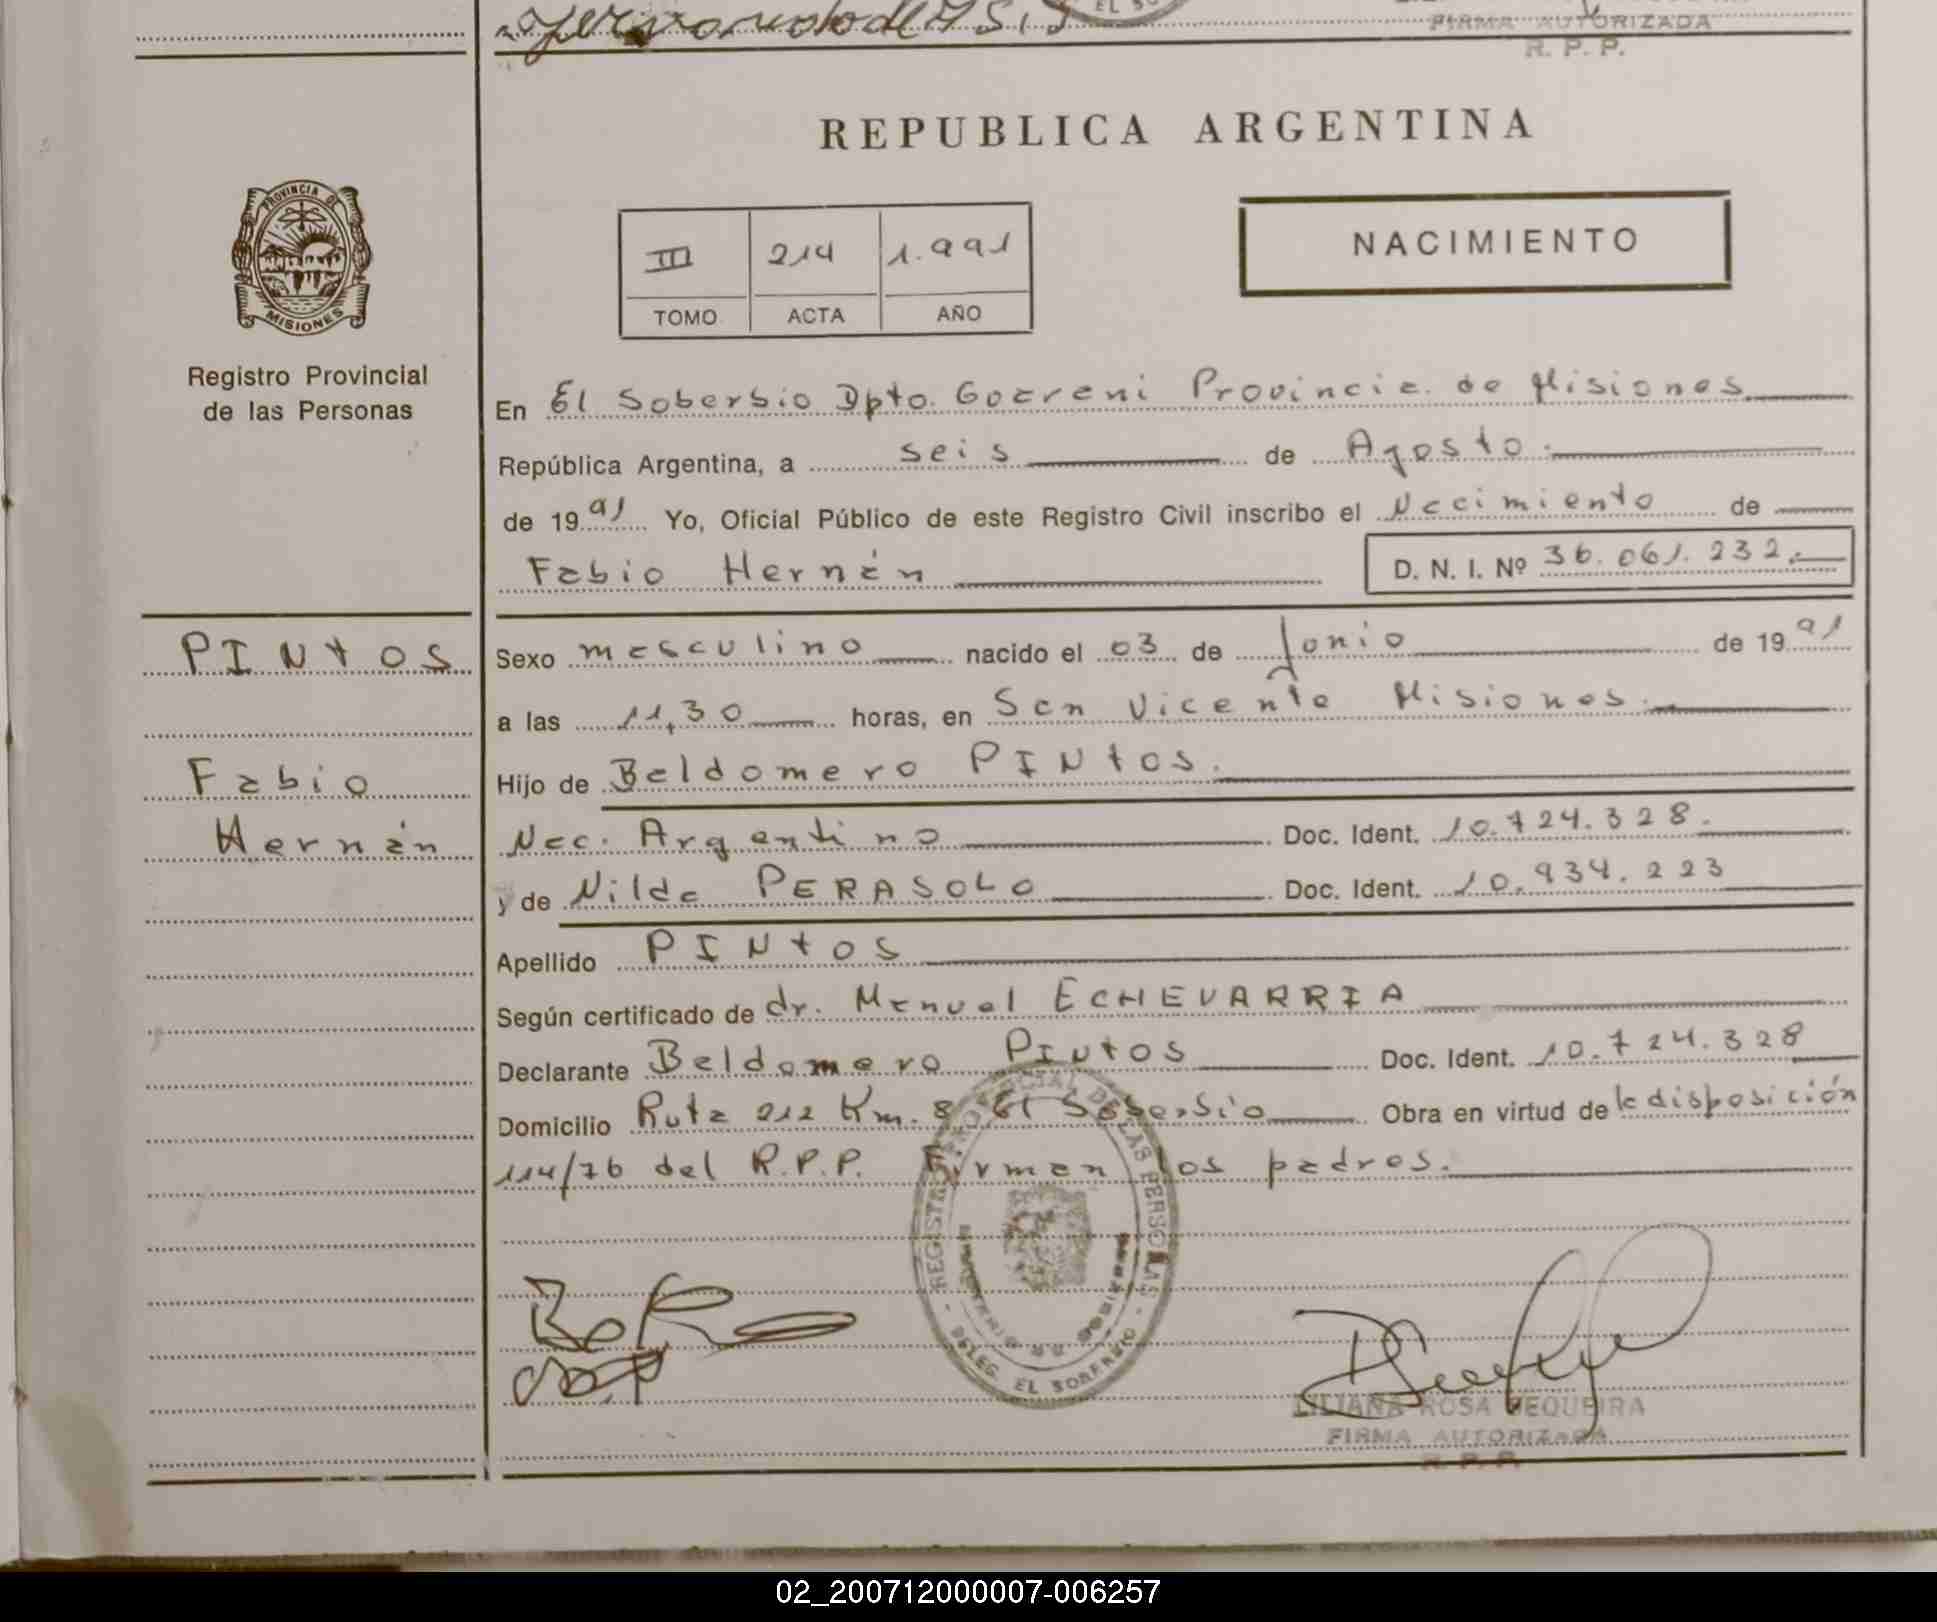 FIRMA AUTORIZADA
R. P. P.
REPUBLICA ARGENTINA
PROVINCIA DE
MISIONES
Registro Provincial
de las Personas
III 214 1.991
TOMO ACTA AÑO
NACIMIENTO
En El Soberbio Dpto. Guarani Provincia de Misiones
República Argentina, a seis de Agosto.
de 1991 Yo, Oficial Público de este Registro Civil inscribo el Nacimiento de
Fabio Hernán D. N. I. Nº 36.061.232.
PINtos
Sexo masculino nacido el 03 de Junio de 1991
a las 11,30 horas, en San Vicente Misiones.
Fabio
Hijo de Baldomero PINtos.
Hernán
Nac. Argentino Doc. Ident. 10.724.328.
y de Nilda PERASOLO Doc. Ident. 10.934.223
Apellido PINtos
Según certificado de dr. Manuel ECHEVARRIA
Declarante Baldomero PINtos Doc. Ident. 10.724.328
Domicilio Ruta 212 Km. 8 El Soberbio Obra en virtud de la disposición
114/76 del R.P.P. Firman los padres.
REGISTRO PROVINCIAL DE LAS PERSONAS
DELEG. EL SOBERBIO
LILIANA ROSA SEQUEIRA
FIRMA AUTORIZADA
R. P. P.
02_200712000007-006257